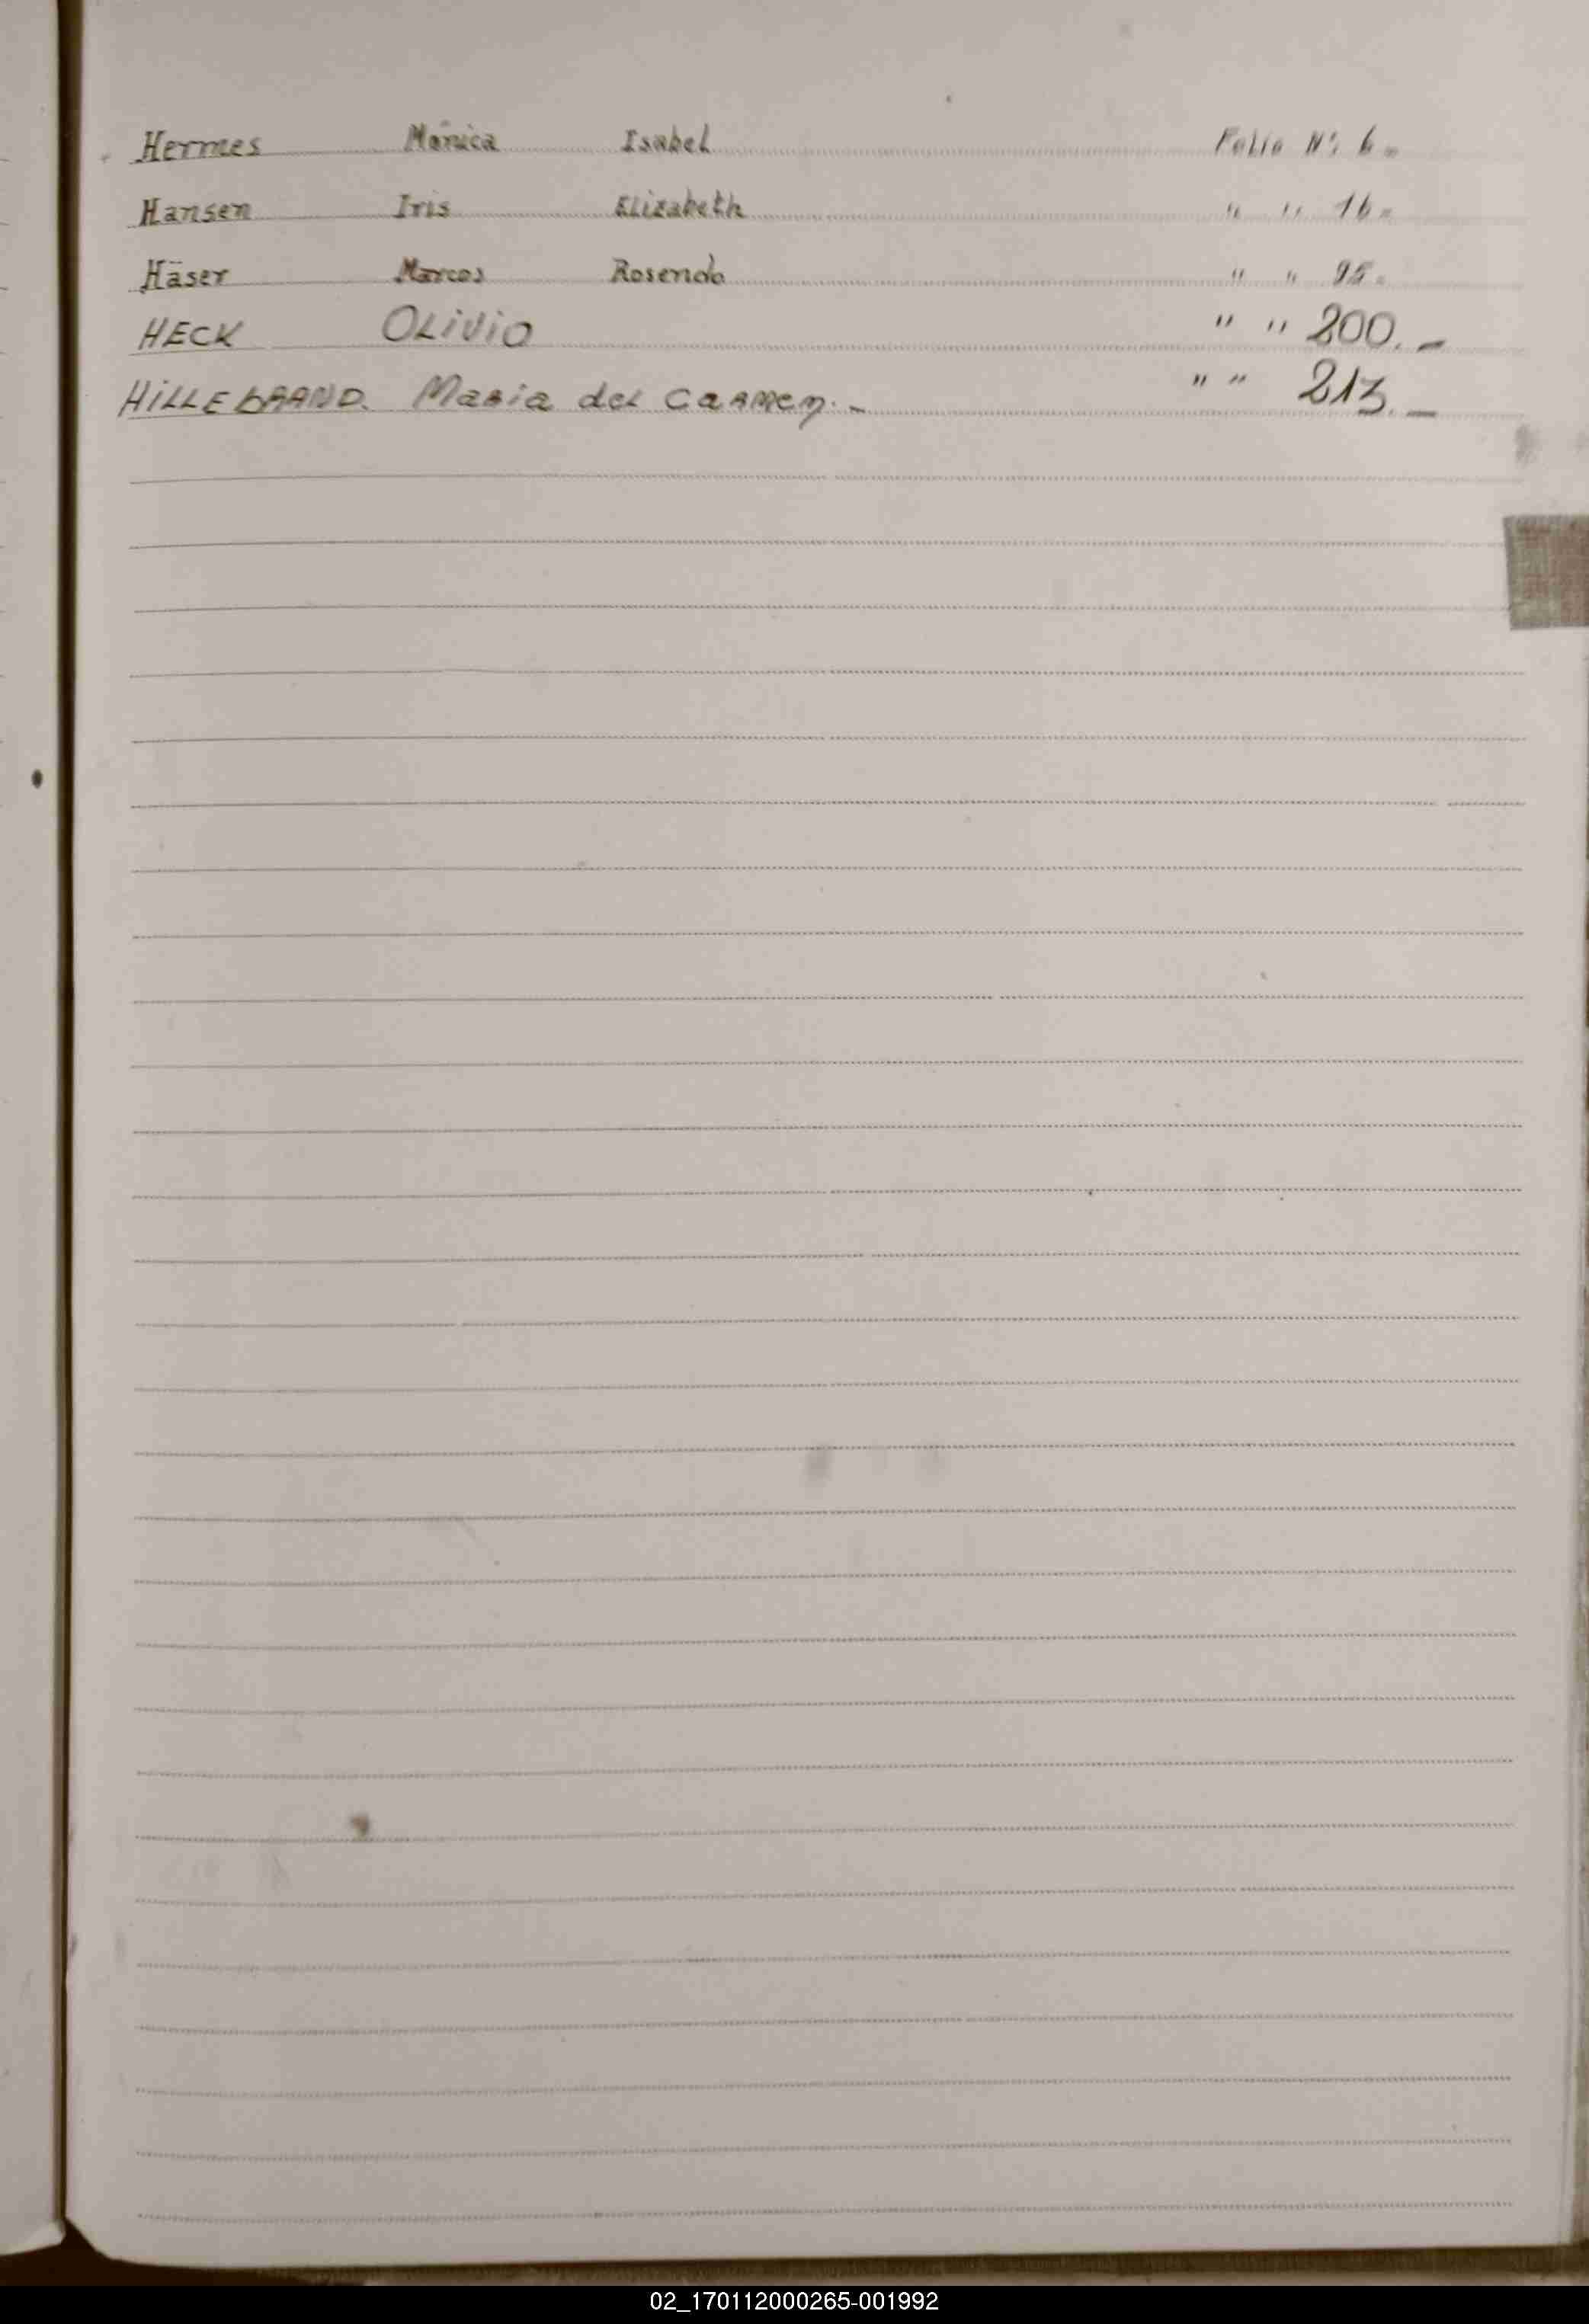 Hermes Mónica Isabel Folio Nº: 6=
Hansen Iris Elizabeth " " 16=
Häser Marcos Rosendo " " 95=
HECK OLiViO " " 200.-
HiLLEbRAND. Maria deL CaRMen.- " " 213.-
02_170112000265-001992